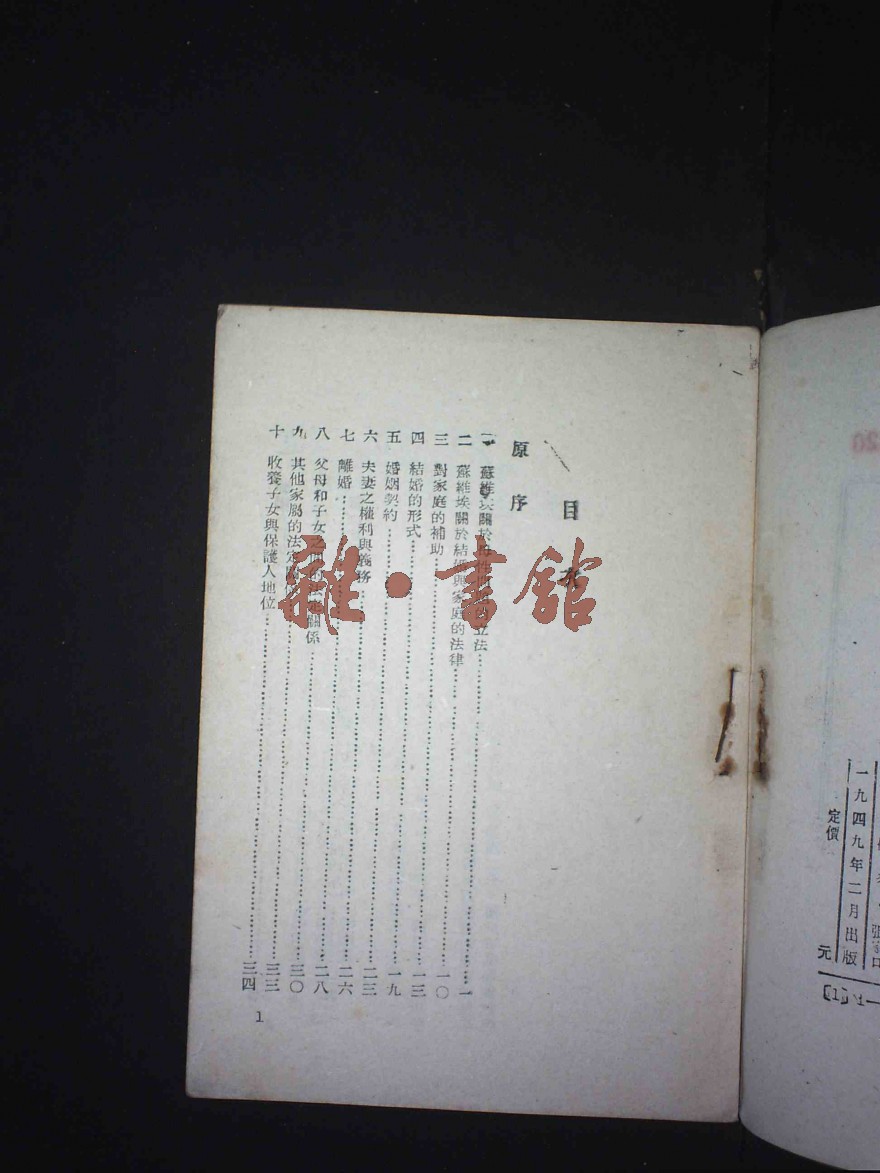 目次
原序
一 蘇維埃關於母性 立法……一
二 蘇維埃關於結婚與家庭的法律……一〇
三 對家庭的補助……一三
四 結婚的形式……一九
五 婚姻契約……二三
六 夫妻之權利與義務……二六
七 離婚……二八
八 父母和子女之間的法定關係……三〇
九 其他家屬的法定關係……三三
十 收養子女與保護人地位……三四
1
雜·書館
張家口
一九四九年二月出版
定價 元